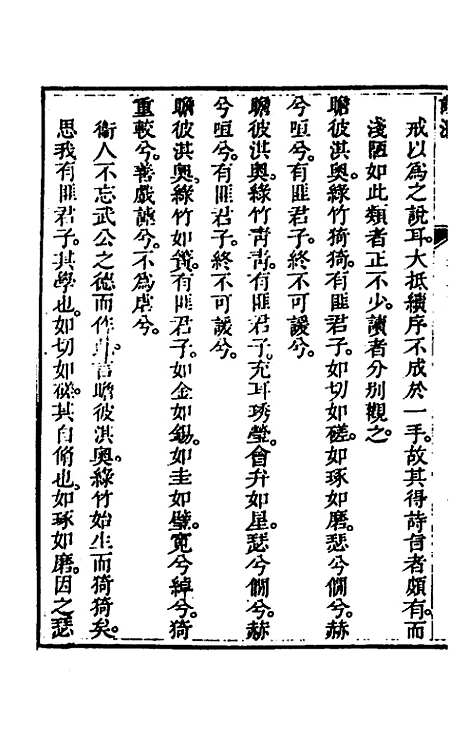 戒以為之說耳。大抵續序不成於一手。故其得詩旨者頗有。而
淺陋如此類者正不少。讀者分別觀之。
瞻彼淇奧。綠竹猗猗。有匪君子。如切如磋。如琢如磨。瑟兮僩兮。赫
兮咺兮。有匪君子。終不可諼兮。
瞻彼淇奧。綠竹靑靑。有匪君子。充耳琇瑩。會弁如星。瑟兮僩兮。赫
兮咺兮。有匪君子。終不可諼兮。
瞻彼淇奧。綠竹如簀。有匪君子。如金如錫。如圭如璧。寛兮綽兮。猗
重較兮。善戲謔兮。不為虐兮。
衞人不忘武公之德而作。言瞻彼淇奧。綠竹始生而猗猗矣。
思我有匪君子。其學也。如切如磋。其自脩也。如琢如磨。因之瑟